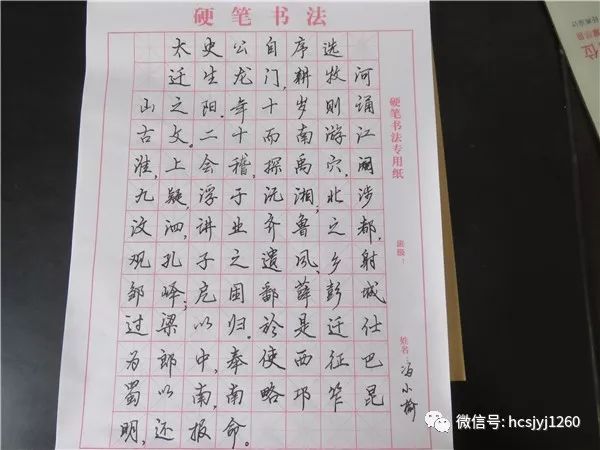 硬笔书法
太史公自序选
迁生龙门,耕牧河
山之阳.年十岁则诵
古文.二十而南游江
淮,上会稽,探禹穴,闚
九疑,浮于沅湘,北涉
汶泗,讲业齐鲁之都,
观孔子之遗风,乡射
邹峄;戹困鄱薛彭城
过梁以归.於是迁仕
为郎中,奉使西征巴
蜀以南,南略邛笮昆
明,还报命。
硬笔书法专用纸
班级:
姓名 冯小榆
微信号: hcsjyj1260